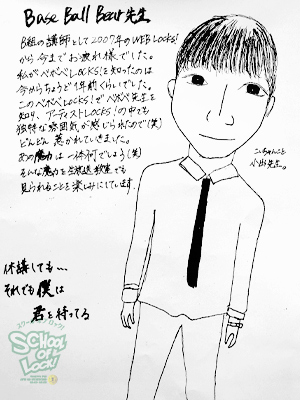 Base Ball Bear 先生
B組の講師として2007年のWEB LOCKS!
から今までお疲れ様でした。
私がベボベLOCKS!を知ったのは
今からちょうど1年前くらいでした。
このベボベLOCKS!でベボベ先生を
知り、アーティストLOCKS!の中でも
独特な雰囲気が感じられたので(笑)
どんどん惹かれていきました。
あの魔力は一体何でしょう(笑)
そんな魔力を生放送教室でも
見られることを楽しみにしています。
こいちゃんこと
小出先生。
休講しても…
それでも僕は
君を待ってる
SCHOOL
OF
LOCK!